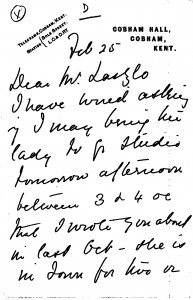 D
TELEGRAMS, COBHAM, KENT.
STATION SOLE STREET.
L.C & D.RY.
COBHAM HALL,
COBHAM,
KENT.
Feb 25
Dear Mr Laszlo
I have wired asking
if I may bring the
lady to yr studio
tomorrow afternoon
between 3 & 4 oc
that I wrote you about
in last Oct - she is
in Town for two or